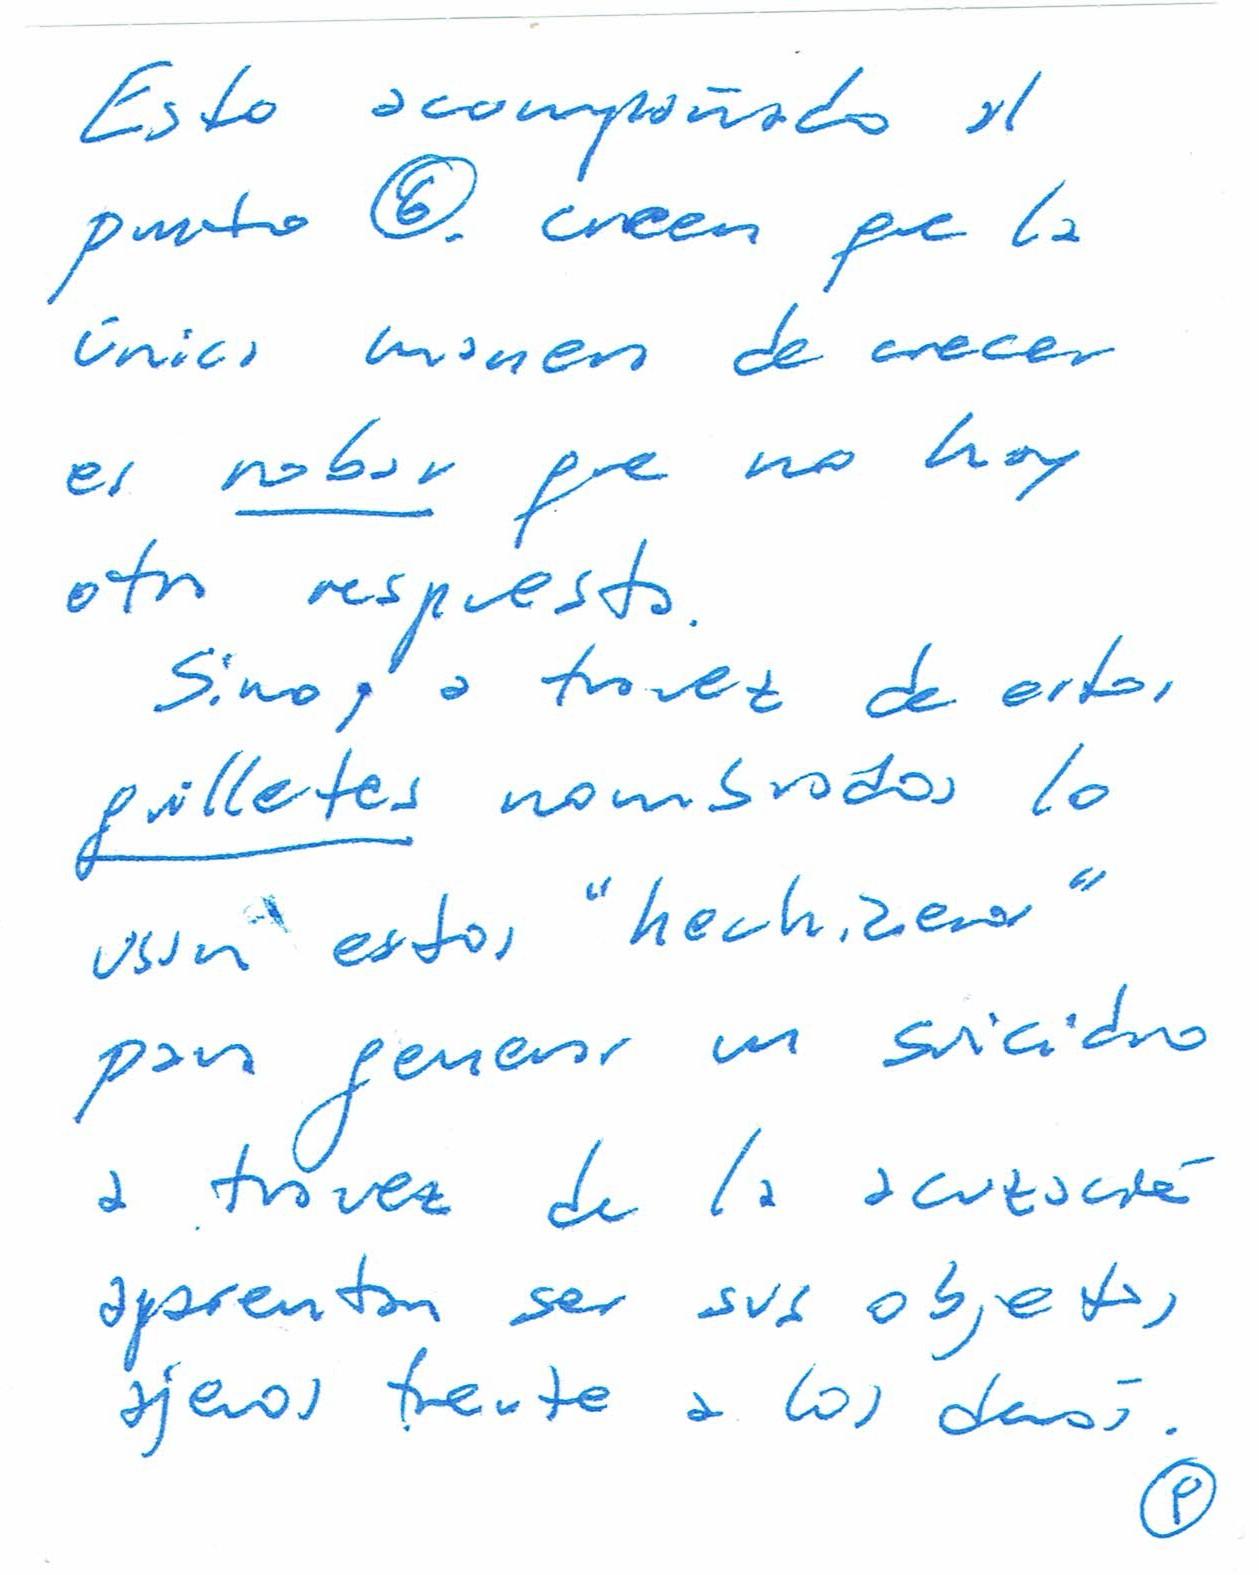 Esto acompañado al
punto 6. creen que la
única manera de crecer
es robar que no hay
otra respuesta.
Sino, a travez de estos
guilletes nombrados lo
usan estos "hechizeros"
para generar un suicidio
a travez de la
aparentan ser sus objetos
ajenos frente a los demás.